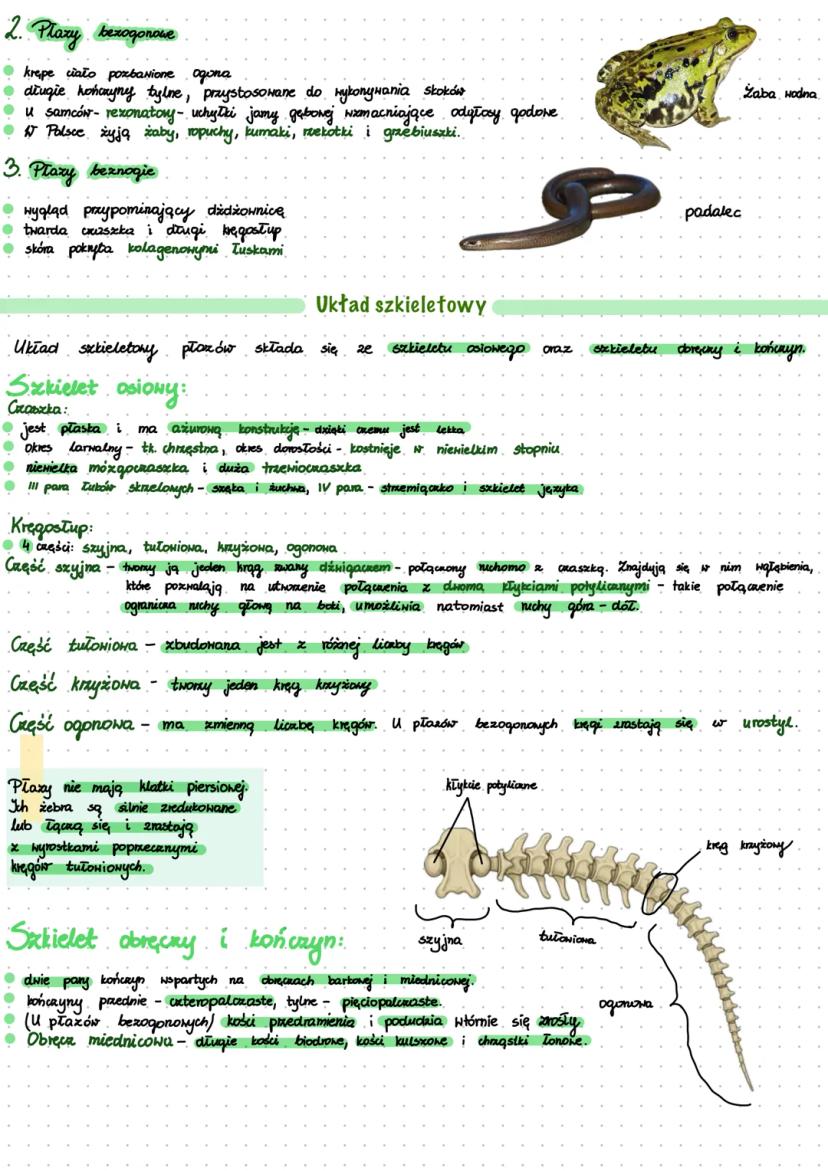 2. Płazy bezogonowe
krępe ciało pozbawione ogona
długie kończyny tylne, przystosowane do wykonywania skoków
U samców - rezonatory - uchyłki jamy gębowej wzmacniające odgłosy godowe
W Polsce żyją żaby, ropuchy, kumaki, rzekotki i grzebiuszki.
Żaba wodna
3. Płazy beznogie
wygląd przypominający dżdżownicę
twarda czaszka i długi kręgosłup
skóra pokryta kolagenowymi łuskami
padalec
Układ szkieletowy
Układ szkieletowy płazów składa się ze szkieletu osiowego oraz szkieletu obręczy i kończyn.
Szkielet osiowy:
Czaszka:
jest płaska i ma ażurową konstrukcję - dzięki czemu jest lekka
okres larwalny - tk. chrzęstna, okres dorosłości - kostnieje w niewielkim stopniu
niewielka mózgoczaszka i duża trzewioczaszka
III para łuków skrzelowych - szczęka i żuchwa, IV para - strzemiączko i szkielet języka
Kręgosłup:
4 części: szyjna, tułowiowa, krzyżowa, ogonowa
Część szyjna - tworzy ją jeden kręg zwany dźwigaczem - połączony ruchomo z czaszką. Znajdują się w nim wgłębienia,
które pozwalają na utworzenie połączenia z dwoma kłykciami potylicznymi - takie połączenie
ogranicza ruchy głową na boki, umożliwia natomiast ruchy góra - dół.
Część tułowiowa - zbudowana jest z różnej liczby kręgów
Część krzyżowa - tworzy jeden kręg krzyżowy
Część ogonowa - ma zmienną liczbę kręgów. U płazów bezogonowych kręgi zrastają się w urostyl.
Płazy nie mają klatki piersiowej.
Ich żebra są silnie zredukowane
lub łączą się i zrastają
z wyrostkami poprzecznymi
kręgów tułowiowych.
kłykcie potyliczne
kręg krzyżowy
szyjna
tułowiowa
ogonowa
Szkielet obręczy i kończyn:
dwie pary kończyn wspartych na obręczach barkowej i miednicowej.
kończyny przednie - czteropalczaste, tylne - pięciopalczaste.
(U płazów bezogonowych) kości przedramienia i podudzia wtórnie się zrosły
Obręcz miednicowa - długie kości biodrowe, kości kulszowe i chrząstki łonowe.